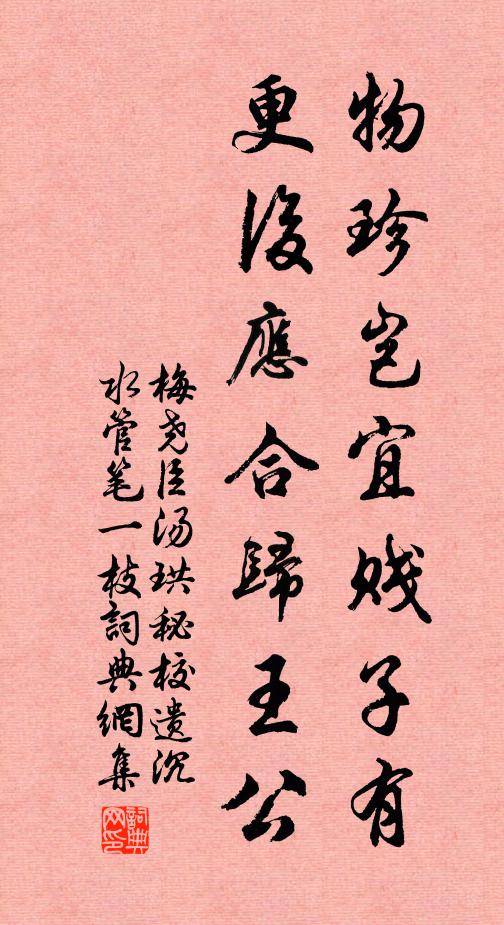 物珍岂宜贱子有
更后應合歸王公
梅尧臣汤珙秘校遗沉
水管笔一枝詞典網集
詞典网印